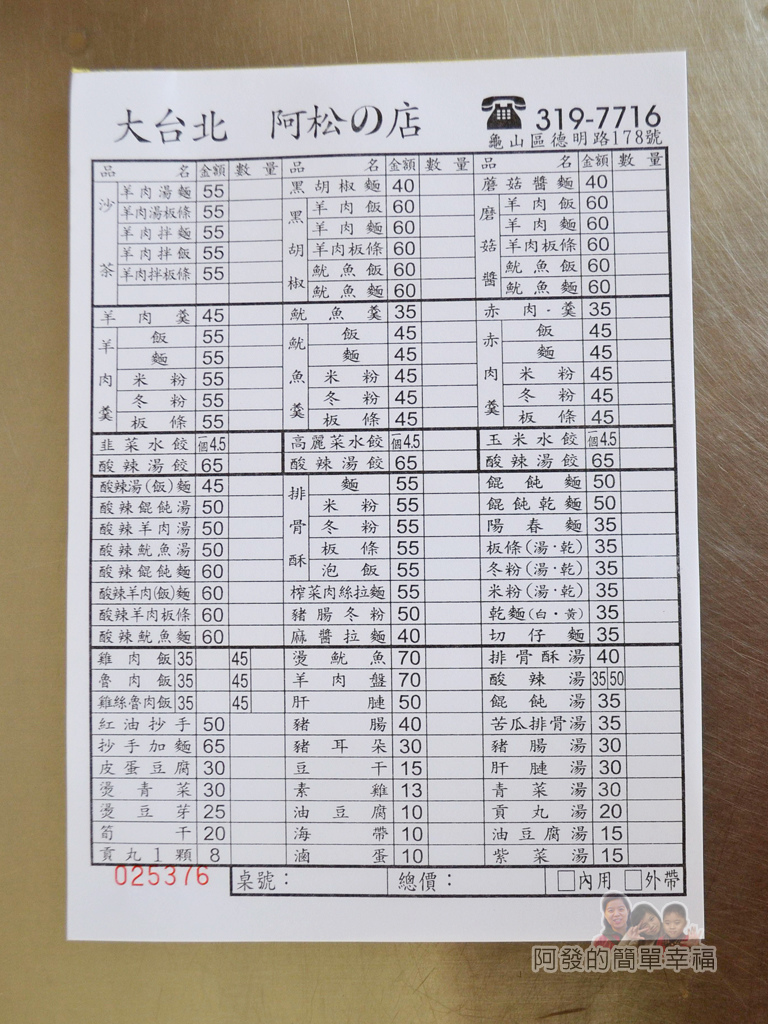 大台北 阿松の店 ☎319-7716
龜山區德明路178號
品名 金額 數量 品名 金額 數量 品名 金額 數量
沙茶 羊肉湯麵 55 黑胡椒麵 40 蘑菇醬麵 40
羊肉湯板條 55 黑胡椒 羊肉飯 60 磨菇醬 羊肉飯 60
羊肉拌麵 55 羊肉麵 60 羊肉麵 60
羊肉拌飯 55 羊肉板條 60 羊肉板條 60
羊肉拌板條 55 魷魚飯 60 魷魚飯 60
魷魚麵 60 魷魚麵 60
羊肉羹 45 魷魚羹 35 赤肉·羹 35
羊肉羹 飯 55 魷魚羹 飯 45 赤肉羹 飯 45
麵 55 麵 45 麵 45
米粉 55 米粉 45 米粉 45
冬粉 55 冬粉 45 冬粉 45
板條 55 板條 45 板條 45
韭菜水餃 一個4.5 高麗菜水餃 一個4.5 玉米水餃 一個4.5
酸辣湯餃 65 酸辣湯餃 65 酸辣湯餃 65
酸辣湯(飯)麵 45 排骨酥 麵 55 餛飩麵 50
酸辣餛飩湯 50 米粉 55 餛飩乾麵 50
酸辣羊肉湯 50 冬粉 55 陽春麵 35
酸辣魷魚湯 50 板條 55 板條(湯·乾) 35
酸辣餛飩麵 60 泡飯 55 冬粉(湯·乾) 35
酸辣羊肉(飯)麵 60 榨菜肉絲拉麵 55 米粉(湯·乾) 35
酸辣羊肉板條 60 豬腸冬粉 50 乾麵(白·黃) 35
酸辣魷魚麵 60 麻醬拉麵 40 切仔麵 35
雞肉飯 35 45 燙魷魚 70 排骨酥湯 40
魯肉飯 35 45 羊肉盤 70 酸辣湯 35 50
雞絲魯肉飯 35 45 肝腱 50 餛飩湯 35
紅油抄手 50 豬腸 40 苦瓜排骨湯 35
抄手加麵 65 豬耳朵 30 豬腸湯 30
皮蛋豆腐 30 豆干 15 肝腱湯 30
燙青菜 30 素雞 13 青菜湯 30
燙豆芽 25 油豆腐 10 貢丸湯 20
筍干 20 海帶 10 油豆腐湯 15
貢丸1顆 8 滷蛋 10 紫菜湯 15
025376 桌號: 總價: □內用 □外帶
阿發的簡單幸福